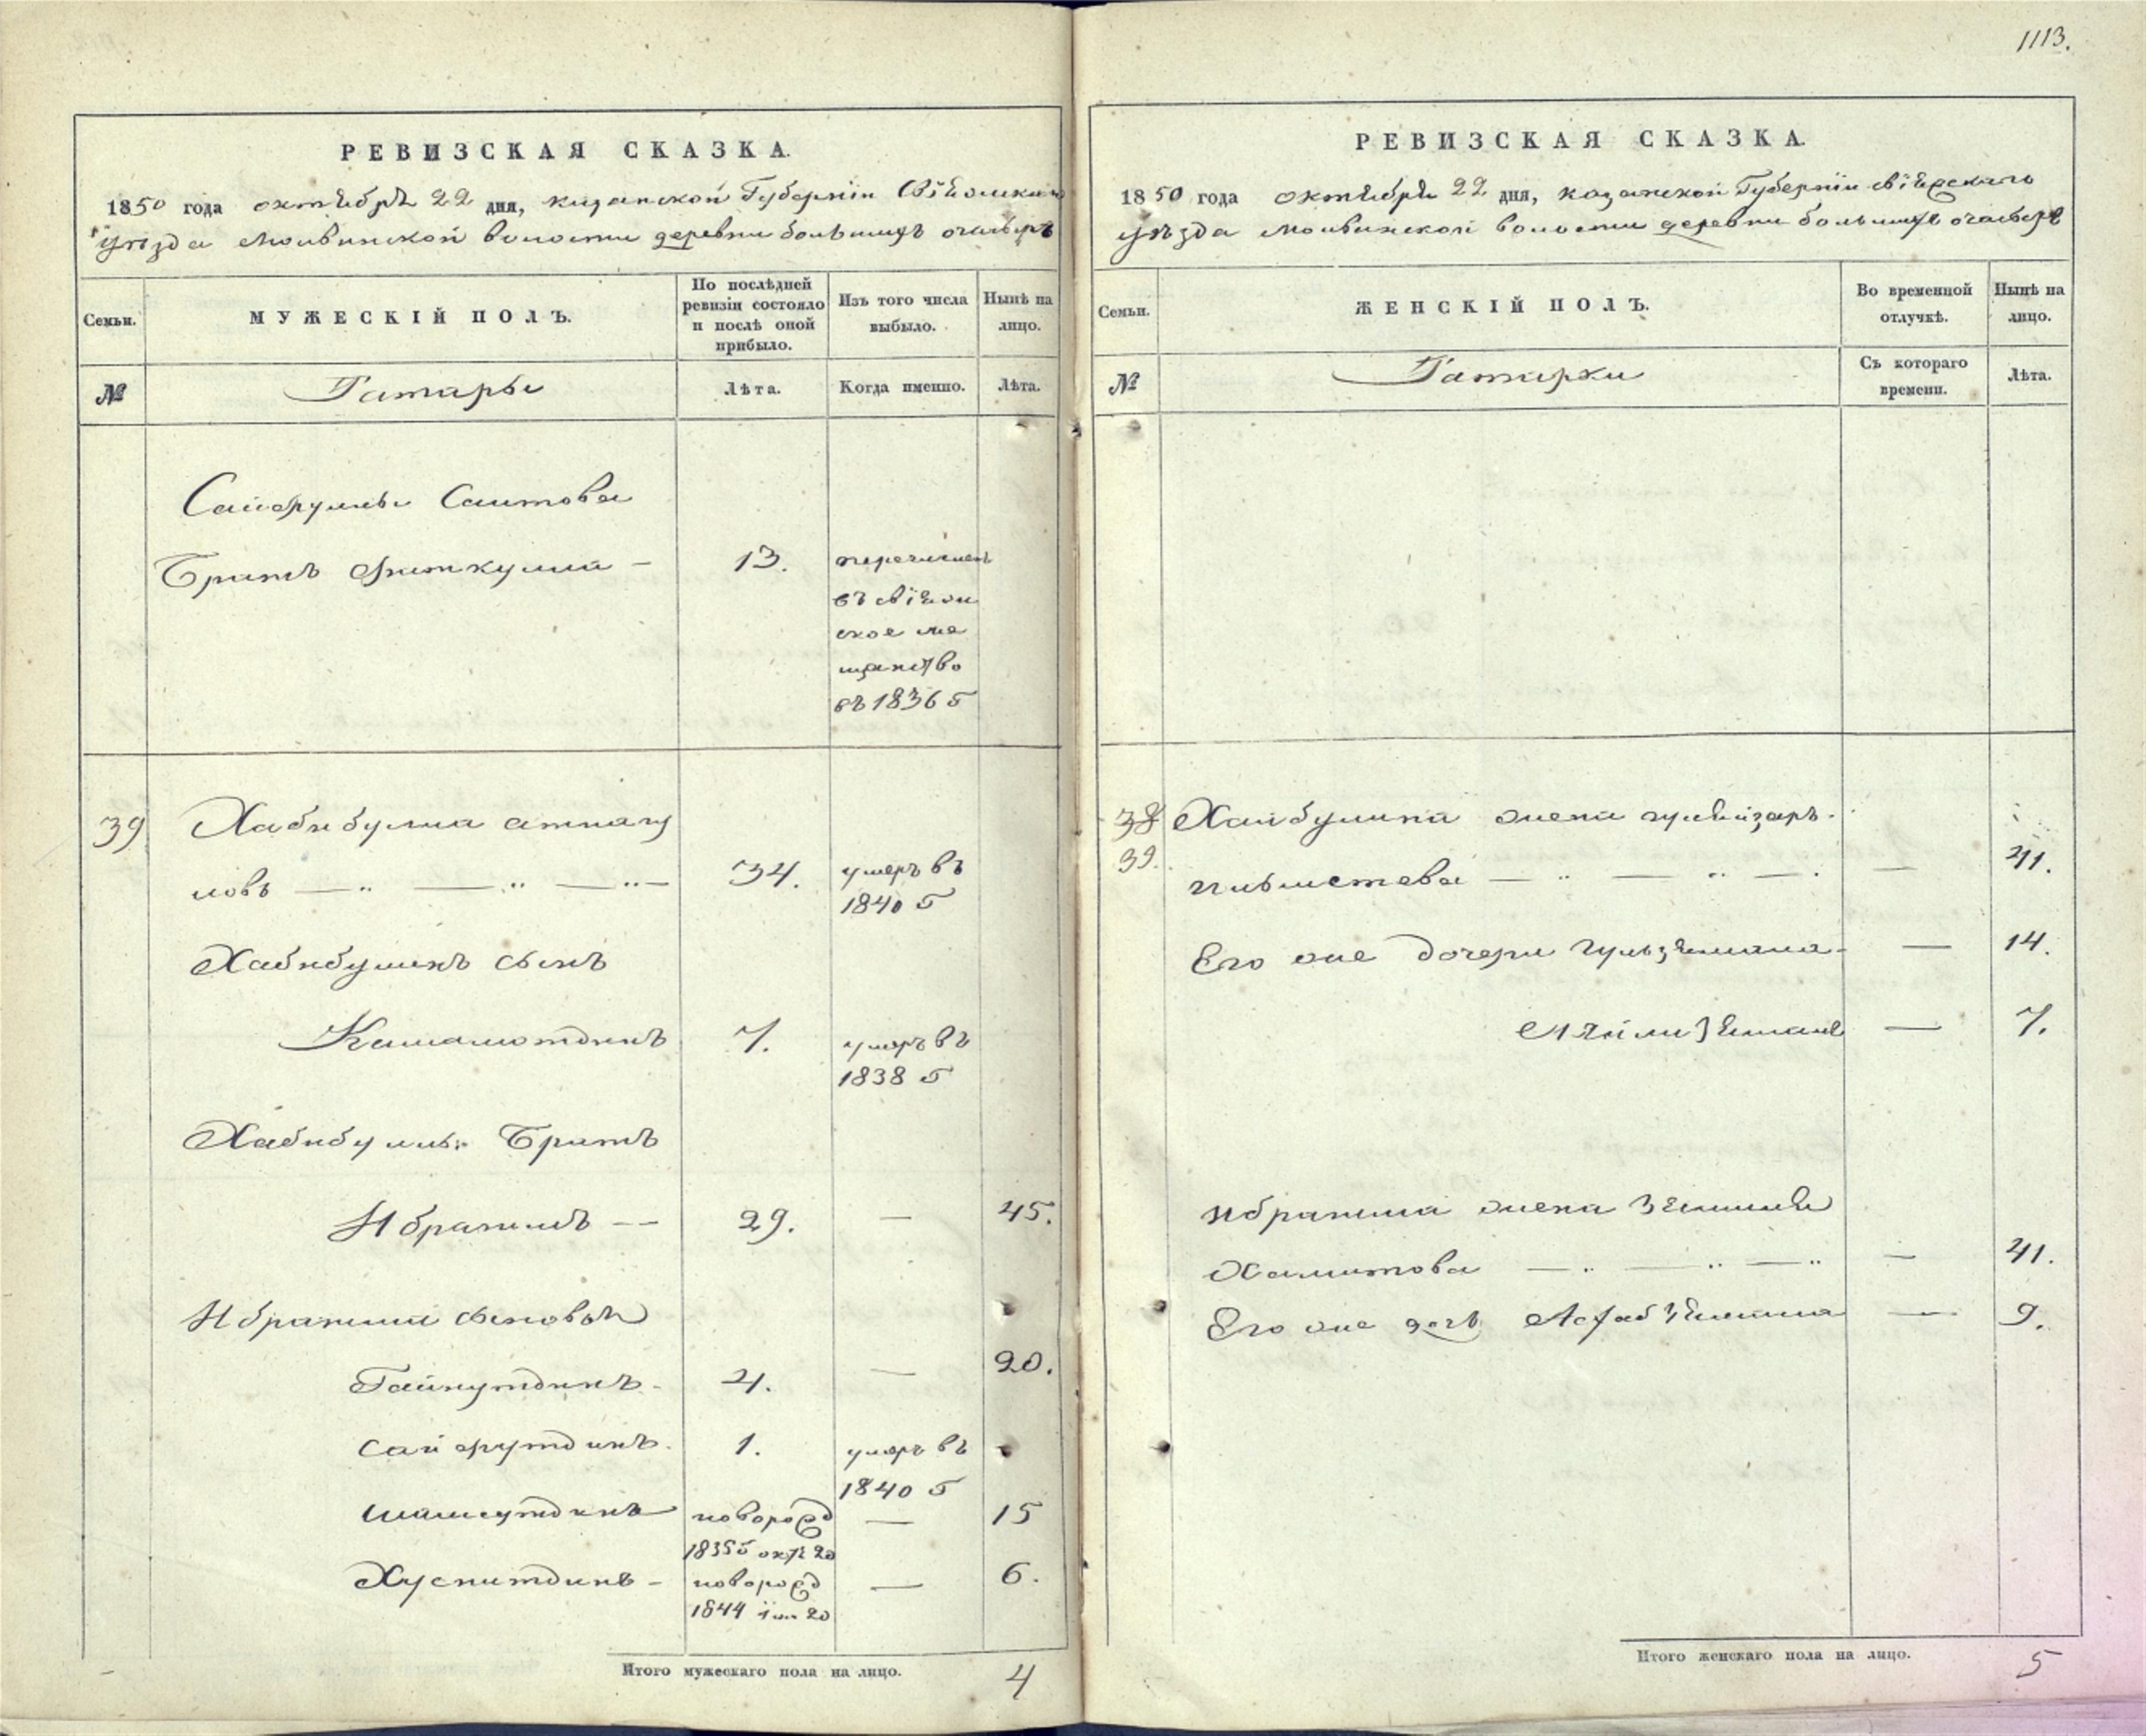 1113.
РЕВИЗСКАЯ СКАЗКА.
1850 года октября 22 дня, казанской Губернiи Свiяжскаго
уѣзда Молвинской волости деревни большихъ очасыръ
Семьи.
МУЖЕСКIЙ ПОЛЪ.
По послѣдней ревизiи состояло и послѣ оной прибыло.
Изъ того числа выбыло.
Нынѣ на лицо.
№
Татары
Лѣта.
Когда именно.
Лѣта.
Сайфуллы Саитова
Братъ Фаткулла — 13. перечисленъ
въ свiяж
ское ме
щанство
въ 1836 г
39 Хабибулла атнагу
ловъ — 34. умеръ въ
1840 г
Хабибулинъ сынъ
Камалютдинъ 7. умеръ въ
1838 г
Хабибуллы Братъ
Ибрагимъ — 29. — 45.
Ибрагима сыновья
Гайнутдинъ 4. — 20.
Сайфутдинъ. 1. умеръ въ
1840 г
шамсутдинъ новорожд — 15
1835 г окт 20
Хуснитдинъ — новорожд — 6.
1844 iюн 20
Итого мужескаго пола на лицо. 4
РЕВИЗСКАЯ СКАЗКА.
1850 года октября 22 дня, казанской Губернiи свiяжскаго
уѣзда Молвинской волости деревни большихъ очасыръ
Семьи.
ЖЕНСКIЙ ПОЛЪ.
Во временной отлучкѣ.
Нынѣ на лицо.
№
Татарки
Съ котораго времени.
Лѣта.
38 Хайбулина жена
39. — 41.
Его же дочери гульзямала — 14.
Ляйлизямал — 7.
Ибрагима жена
Хамитова — 41.
Его же дочь — 9.
Итого женскаго пола на лицо. 5